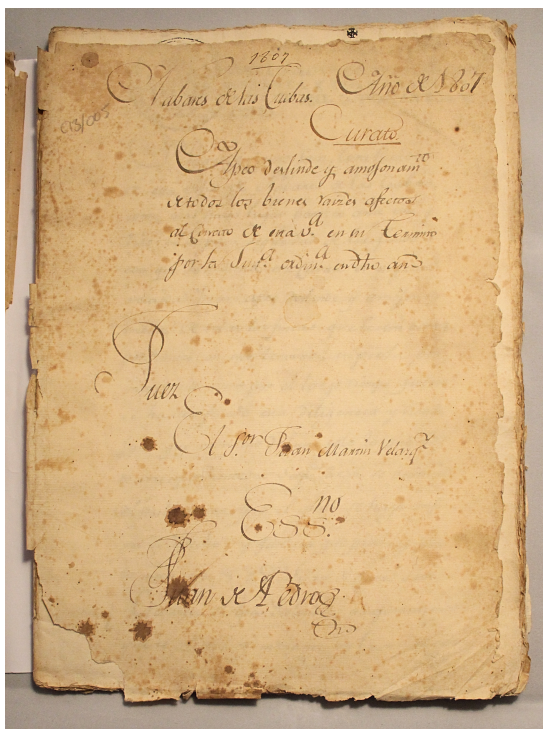 1807
Nabares de las Cuebas. Año de 1807
C13/005
Curato
Apeo deslinde y amojonam.to
de todos los bienes raizes afectos
al Curato de esta V.a en su Termino
por la Just.a ordin.a en dho año
Juez
El s.or Juan Martin Velazq.z
Ess.no
Juan de Pedro